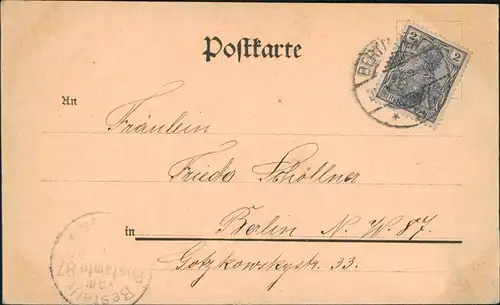 Postkarte
2 2
BERLIN
An
Fräulein
Frieda Schöllner
in Berlin N. W. 87.
Gotzkowskystr. 33.
Bestellt
Postamte 87